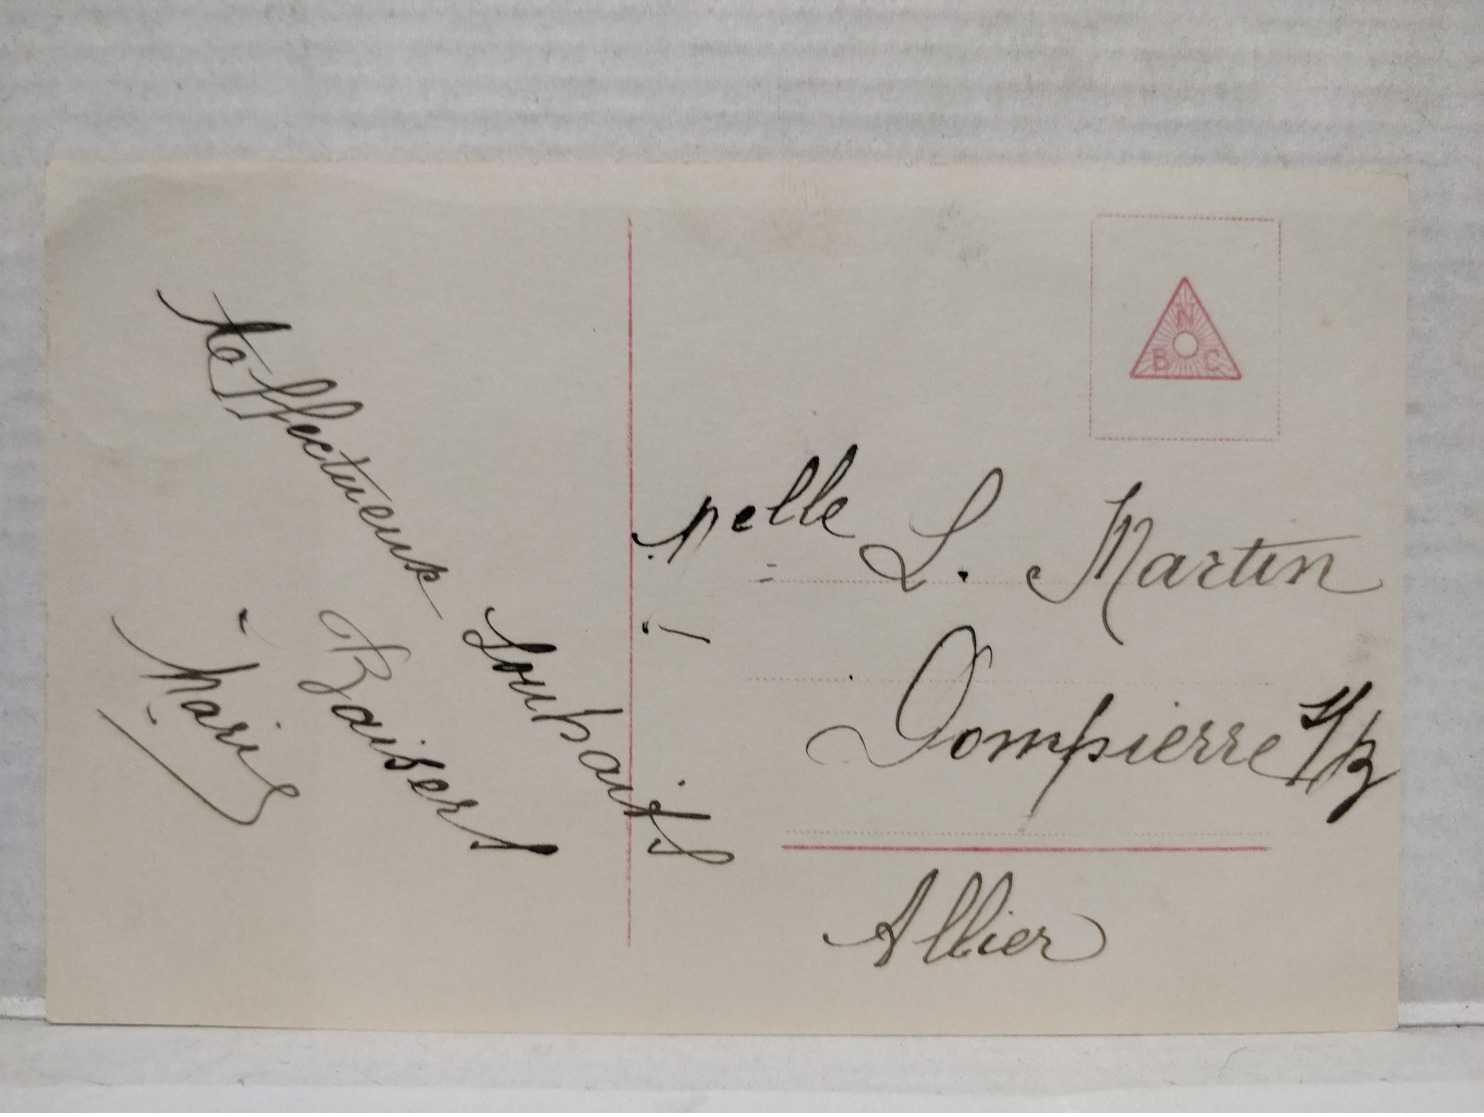 Affectueux souhaits
Baisers
Marie
N
B C
Melle L. Martin
Dompierre s/b
Allier